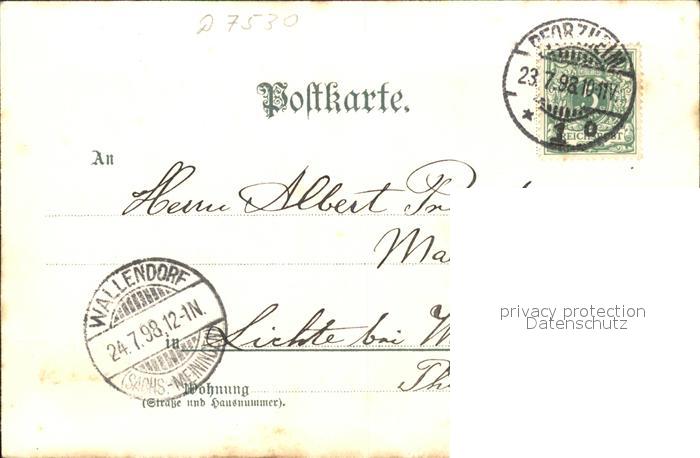 D 7530
PFORZHEIM
23.7.98.10-11V.
REICHSPOST
Postkarte.
An
Herrn Albert
WALLENDORF
24.7.98.12-1N.
(SACHS.-MEININGEN)
in Lichte bei W
Th
Wohnung
(Straße und Hausnummer).
privacy protection
Datenschutz